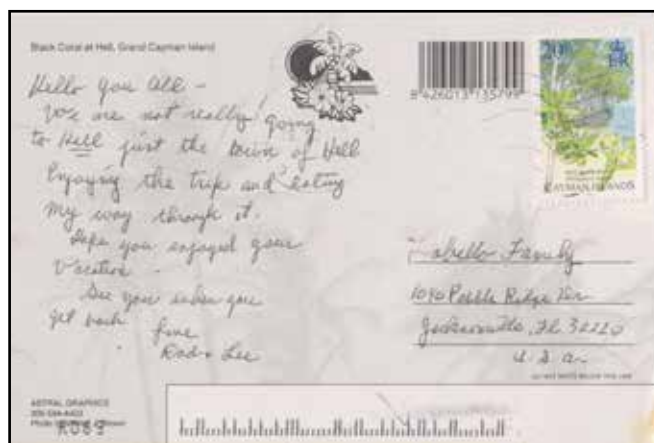 Black Coral at Hell, Grand Cayman Island
Hello you all -
We are not really going
to Hell just the town of Hell
Enjoying the trip and eating
my way through it.
Hope you enjoyed your
Vacation.
See you when you
get back
Love
Rod & Lee
8 426013 135799
20
ER
CAYMAN ISLANDS
Family
1090 Pebble Ridge
Jacksonville, Fl 32220
U.S.A.
DO NOT WRITE BELOW THIS LINE
ASTRAL GRAPHICS
Photo